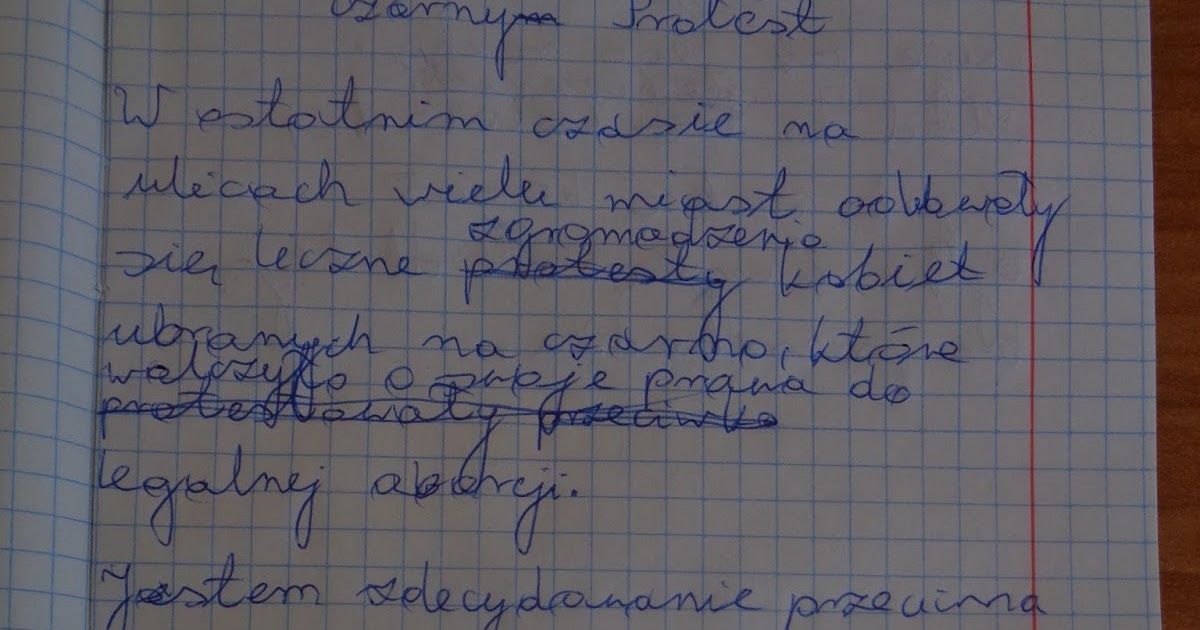 Czarny Protest
W ostatnim czasie na
ulicach wielu miast odbywały
zgromadzenia
się liczne protesty kobiet
ubranych na czarno, które
walczyło o swoje prawa do
protestowały przeciwko
legalnej aborcji.
Jestem zdecydowanie przeciwna